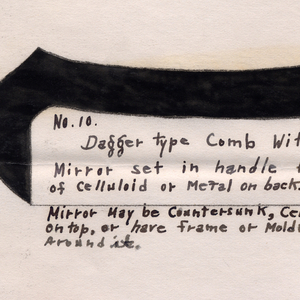 No. 10.
Dagger type Comb Wit
Mirror set in handle
of Celluloid or Metal on back.
Mirror May be Countersunk, Ce
on top, or have frame or Mold
Around it.